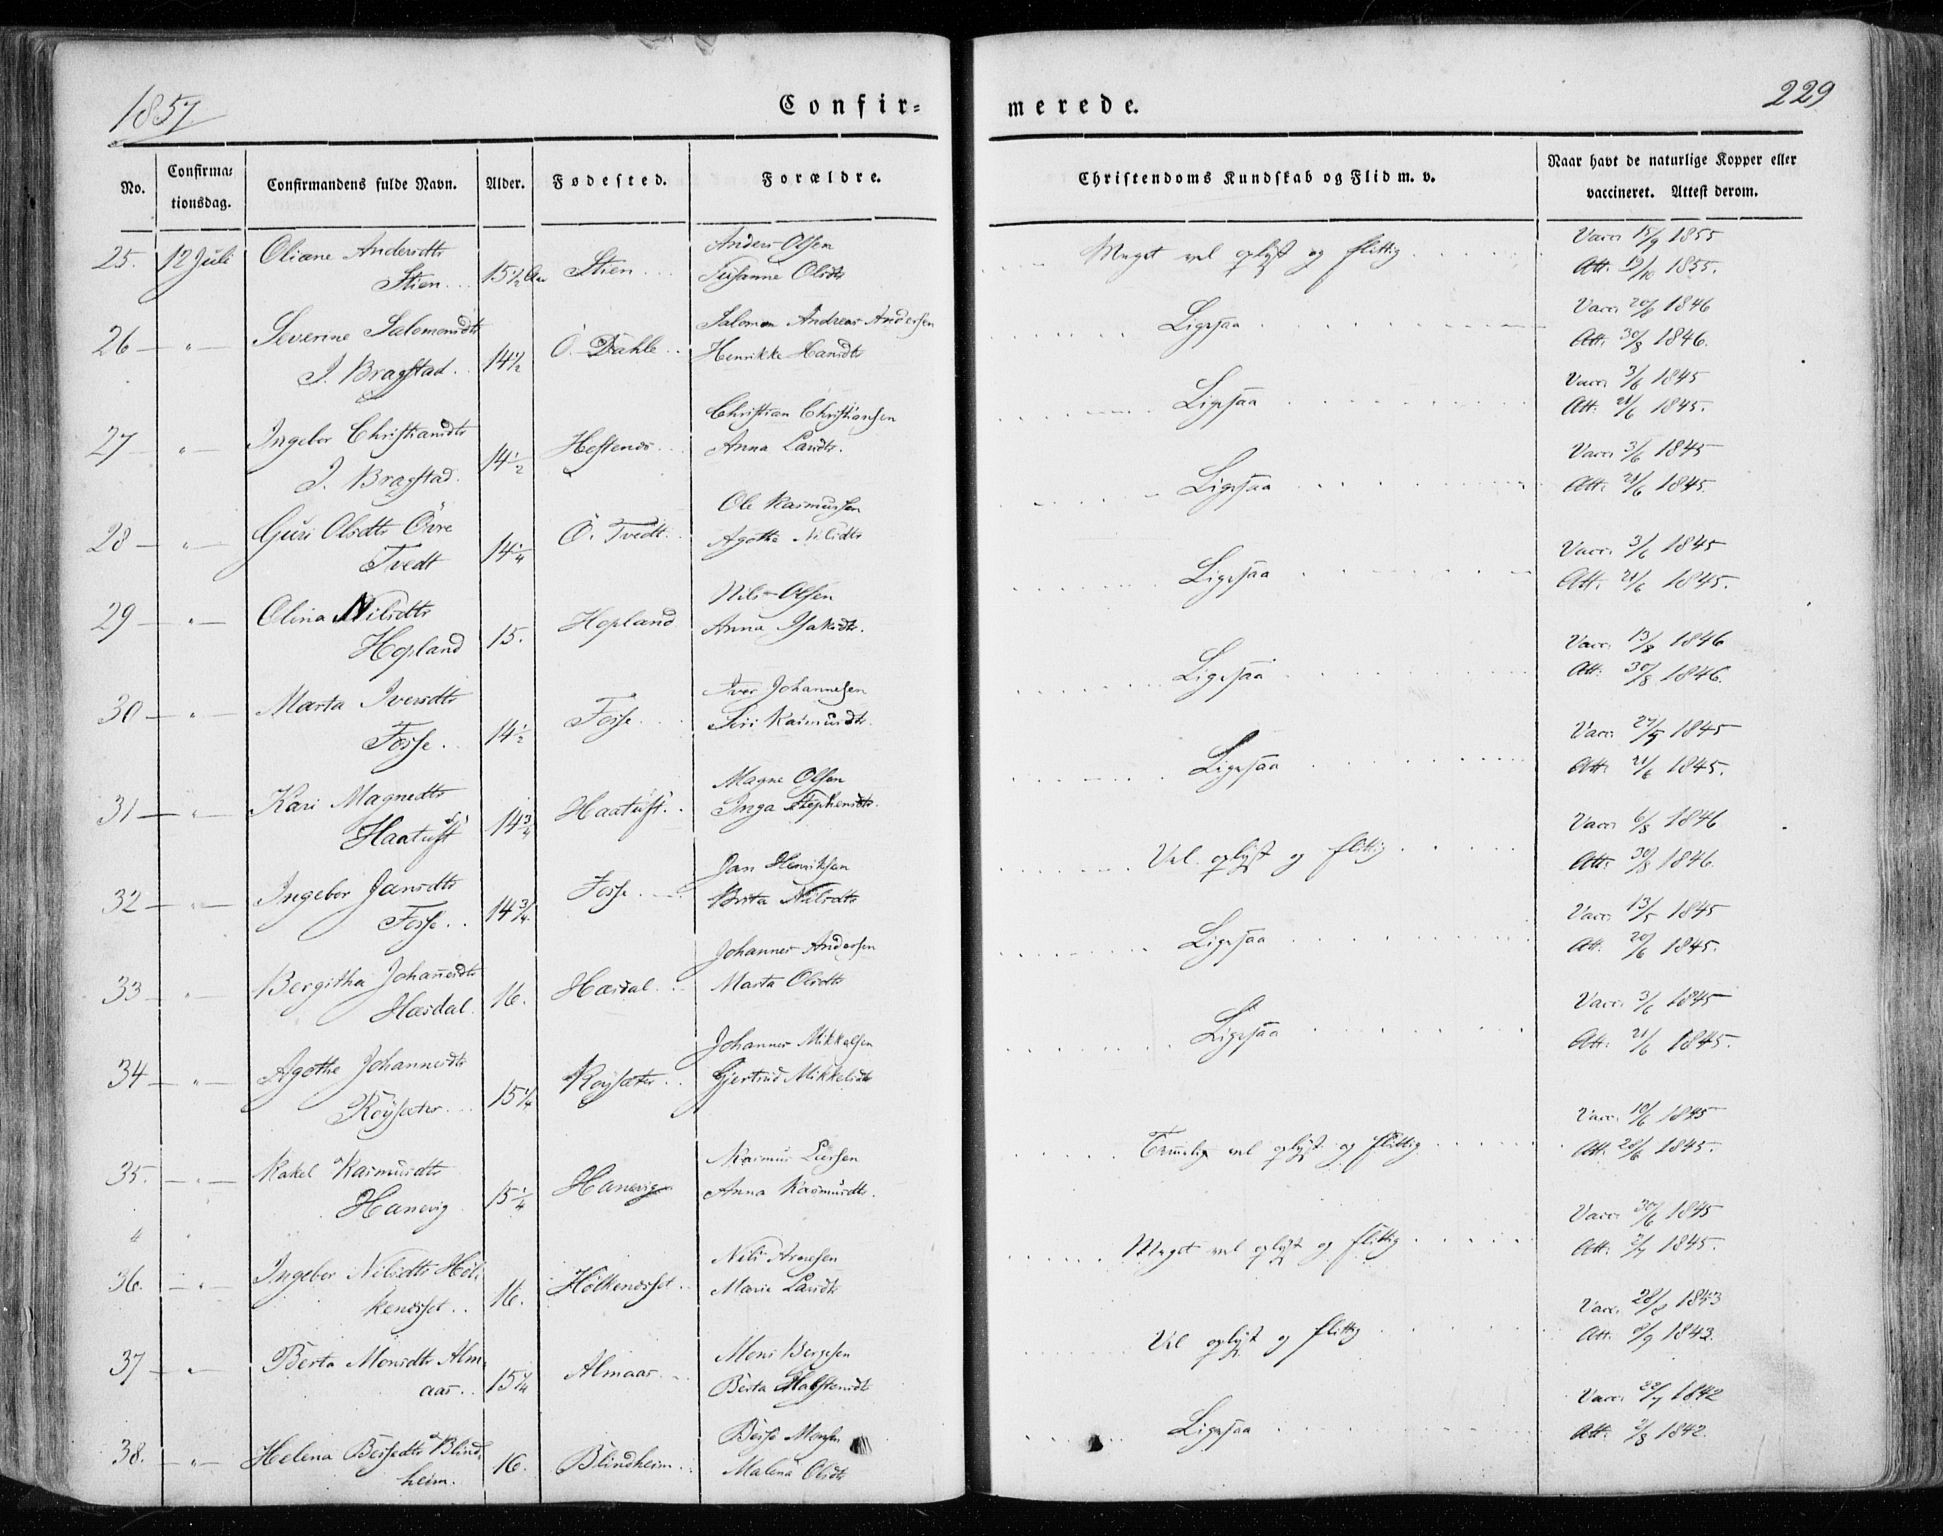 1857.
Confir=
merede.
229
No.
Confirma=
tionsdag.
Confirmandens fulde Navn.
Alder.
Fødested.
Forældre.
Christendoms Kundskab og Flid m. v.
Naar havt de naturlige Kopper eller
vaccineret. Attest derom.
25. 12 Juli Oliane Andersdtr Anders Olsen Meget vel oplyst og flittig Vacc. 15/9 1855
Stien 15½ Aar Stien Susanne Olsdtr Att. 19/10 1855.
26 — " — Severine Salomonsdtr Salomon Andreas Andersen Ligesaa Vacc. 20/8 1846
I. Bragstad. 14½ Ö. Dahle Henrikke Hansdtr Att. 30/8 1846.
27 — " — Ingebor Christiansdtr Christian Christiansen Ligesaa Vacc. 3/6 1845
I. Bragstad. 14½ Hestenes Anna Larsdtr. Att. 21/6 1845.
28 — " — Guri Olsdtr Övre Ole Rasmussen Ligesaa Vacc. 3/6 1845
Tvedt 14¼ Ö. Tvedt Agothe Nilsdtr Att. 21/6 1845.
29 — " — Olina Nilsdtr Nils Olsen Ligesaa Vacc. 3/6 1845
Hopland 15. Hopland Anna Isaksdtr. Att. 21/6 1845.
30 — " — Marta Iversdtr Iver Johannesen Ligesaa Vacc. 13/8 1846
Fosse. 14½ Fosse Siri Rasmusdtr. Att. 30/8 1846.
31 — " — Kari Magnedtr Magne Olsen Ligesaa Vacc. 27/5 1845
Haatuft 14¾ Haatuft. Inga Stephensdtr. Att. 21/6 1845.
32 — " — Ingebor Jansdtr Jan Henriksen Vel oplyst og flittig Vacc. 6/8 1846
Fosse. 14¾ Fosse Brita Nilsdtr Att. 30/8 1846.
33 — " — Bergitha Johannesdtr Johannes Andersen Ligesaa Vacc. 13/5 1845
Hasdal. 16. Hasdal. Marta Olsdtr Att. 20/6 1845.
34 — " — Agothe Johannesdtr Johannes Mikkelsen Ligesaa Vacc. 3/6 1845
Röysæter 15¼ Röysæter Gjertrud Mikkelsdtr Att. 21/6 1845.
35. — " — Rakel Rasmusdtr Rasmus Larsen Temmelig vel oplyst og flittig Vacc. 10/6 1845
Hanevig 15¼ Hanevig Anna Rasmusdtr. Att. 28/6 1845.
36. — " — Ingebor Nilsdtr Höl= Nils Arnesen Meget vel oplyst og flittig Vacc. 30/6 1845
kenæsset 16. Hölkenæsset Marie Larsdtr Att. 2/7 1845.
37 — " — Berta Monsdtr Alm= Mons Bergesen Vel oplyst og flittig Vacc. 28/8 1843
aas. 15¼ Almaas Berta Halstensdtr Att. 8/9 1843.
38. — " — Helena Bersedtr Blind= Berse Monsen Ligesaa Vacc. 22/7 1842
heim. 16. Blindheim Malena Olsdtr Att. 2/8 1842.